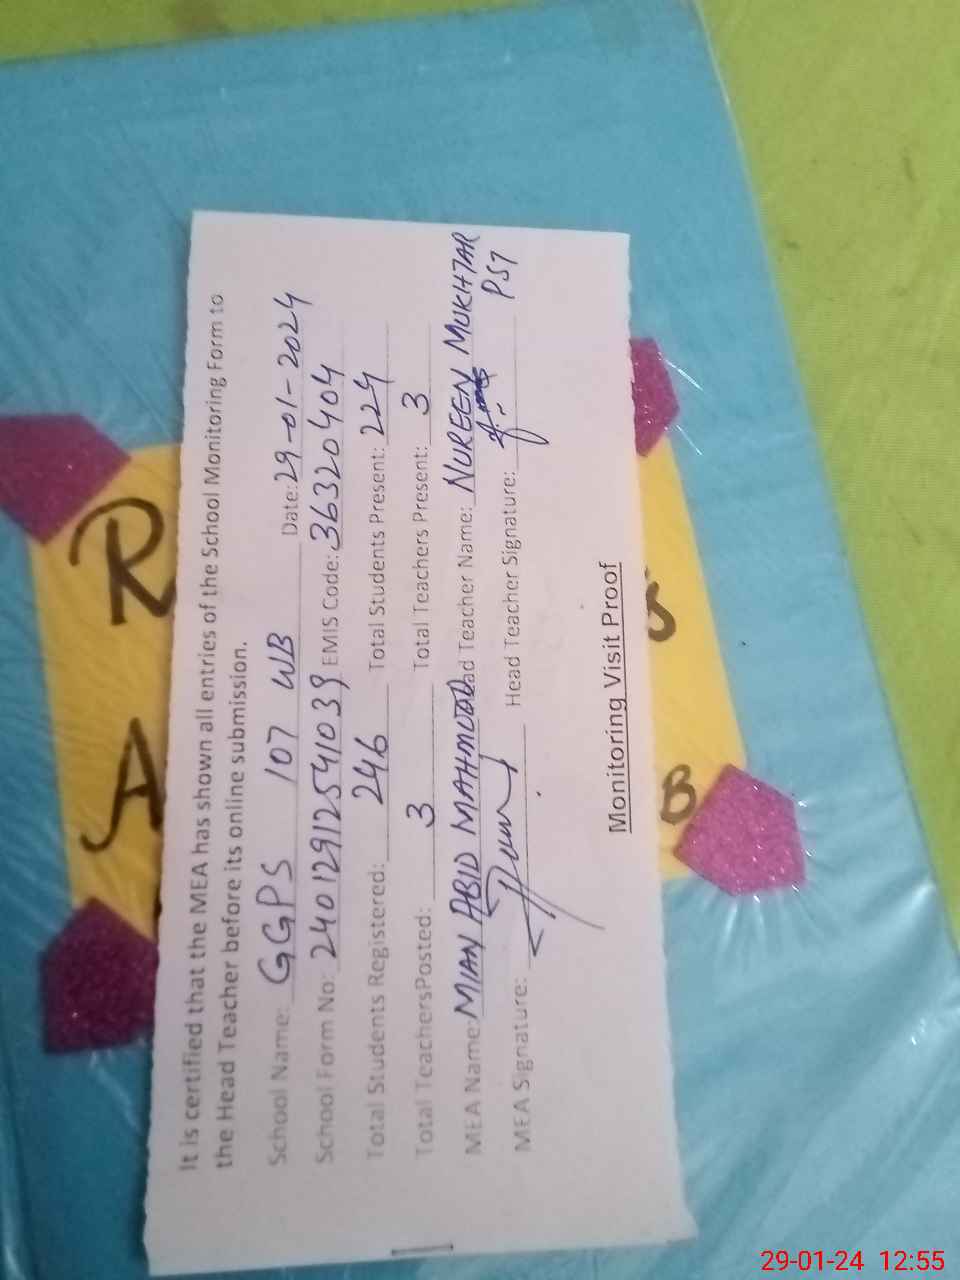 It is certified that the MEA has shown all entries of the School Monitoring Form to
the Head Teacher before its online submission.
School Name: GGPS 107 WB Date: 29-01-2024
School Form No: 240129125541039 EMIS Code: 36320404
Total Students Registered: 246 Total Students Present: 224
Total TeachersPosted: 3 Total Teachers Present: 3
MEA Name: MIAN ABID MAHMOOD ad Teacher Name: NUREEN MUKHTAR
MEA Signature: Head Teacher Signature: PST
Monitoring Visit Proof
R
A
B
29-01-24 12:55